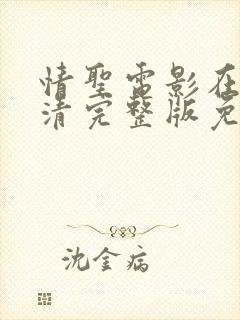 情聖電影在
清完整版免
沈金病